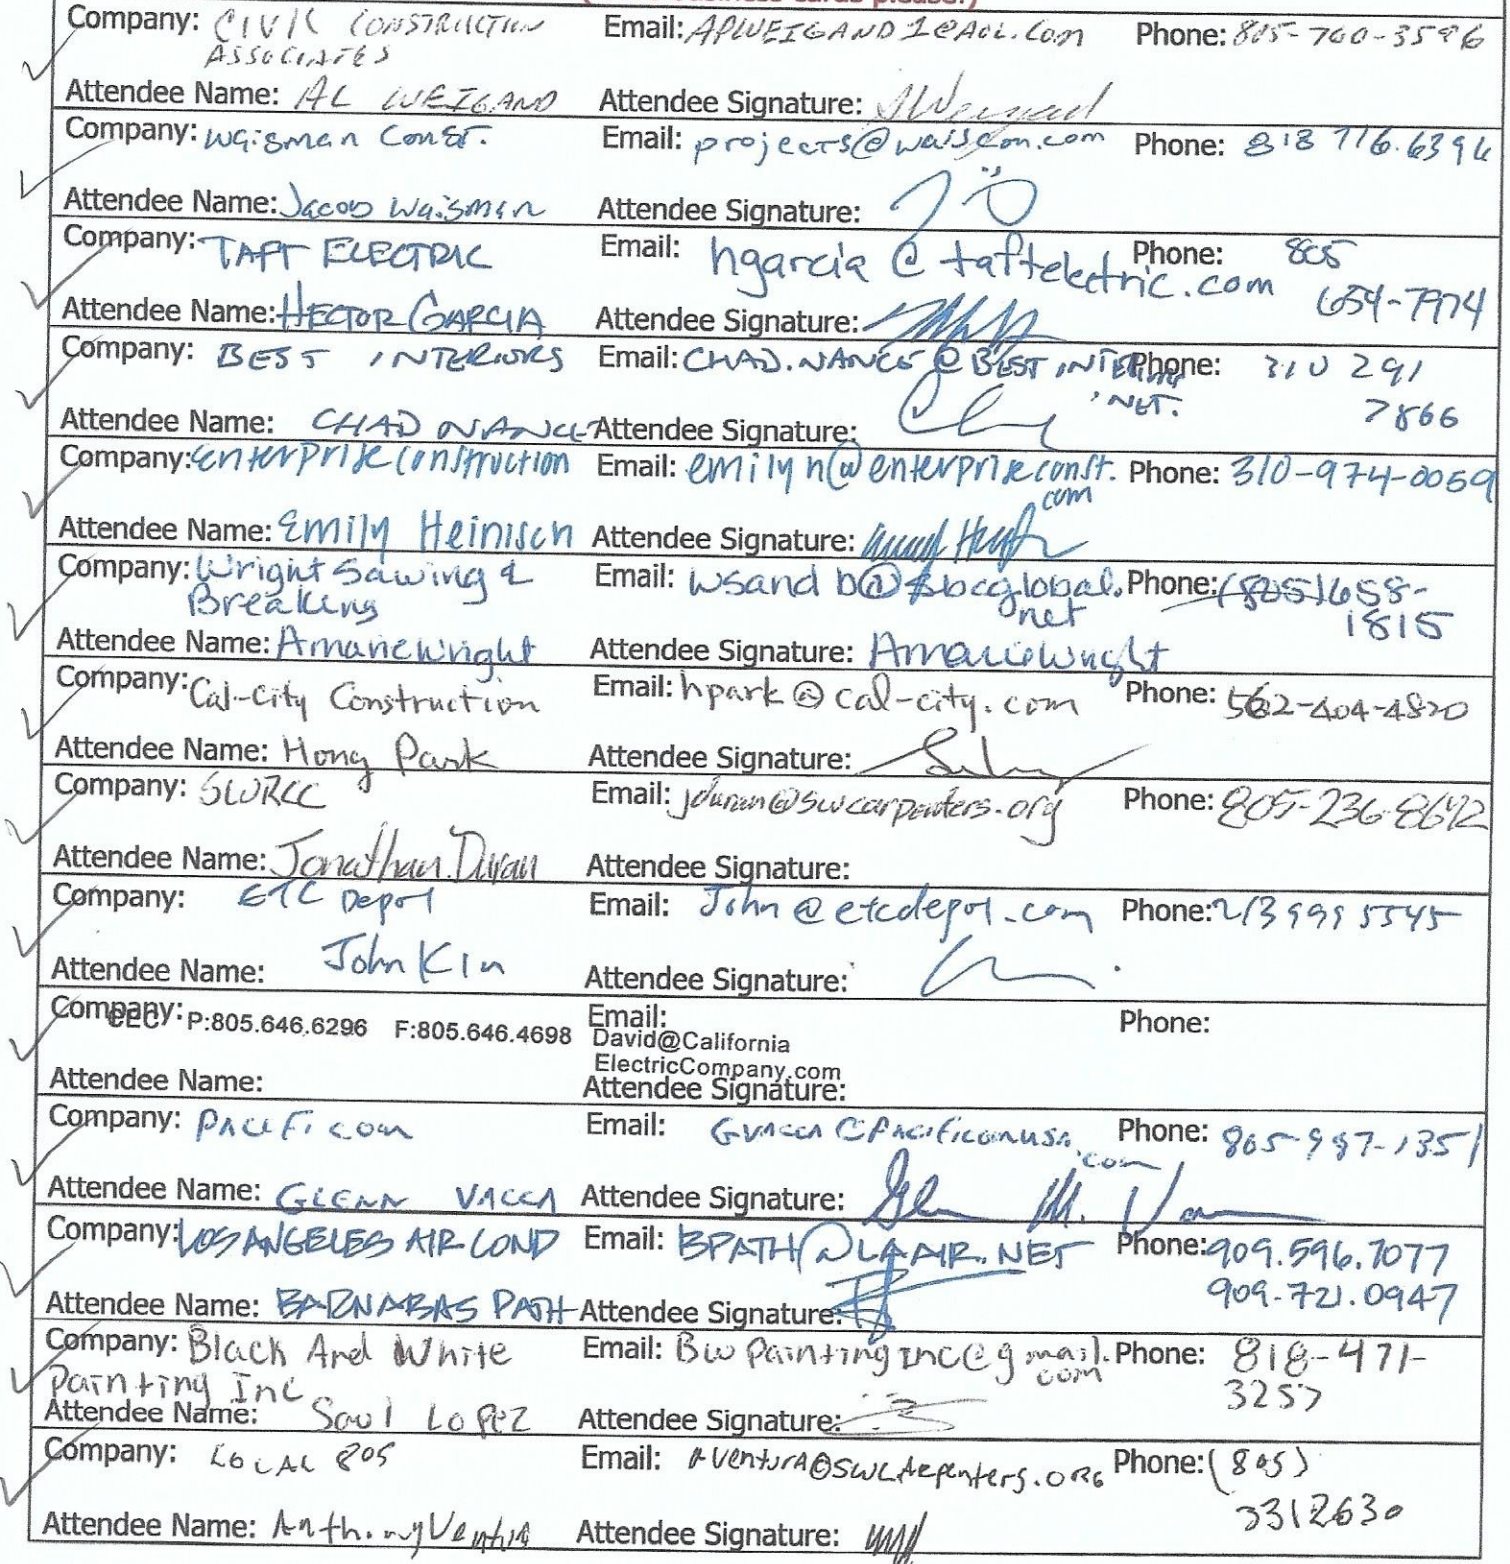 Company: CIVIC CONSTRUCTION Email: APWEIGAND1@AOL.COM Phone: 805-760-3596
ASSOCIATES
Attendee Name: AL WEIGAND Attendee Signature:
Company: Waisman Const. Email: projects@waiscon.com Phone: 818 716.6394
Attendee Name: Jacob Waisman Attendee Signature:
Company: TAFT ELECTRIC Email: hgarcia@taftelectric.com Phone: 805
654-7974
Attendee Name: HECTOR GARCIA Attendee Signature:
Company: BEST INTERIORS Email: CHAD.NANCE@BESTINTERIORS Phone: 310 291
.NET. 7866
Attendee Name: CHAD NANCE Attendee Signature:
Company: Enterprise Construction Email: emilyh@enterpriseconst. Phone: 310-974-0059
com
Attendee Name: Emily Heinisch Attendee Signature:
Company: Wright Sawing & Email: wsandb@sbcglobal. Phone: (805)658-
Breaking net 1815
Attendee Name: Amarie Wright Attendee Signature: Amarie Wright
Company: Cal-City Construction Email: hpark@cal-city.com Phone: 562-404-4820
Attendee Name: Hong Park Attendee Signature:
Company: SWRCC Email: jduran@swcarpenters.org Phone: 805-236-8642
Attendee Name: Jonathan Duran Attendee Signature:
Company: ETC Depot Email: John@etcdepot.com Phone: 213 999 5545
Attendee Name: John Kim Attendee Signature:
Company: CEC P:805.646.6296 F:805.646.4698 Email: Phone:
David@California
ElectricCompany.com
Attendee Name: Attendee Signature:
Company: Pacificom Email: GVACCA@Pacificomusa. Phone: 805-987-1351
com
Attendee Name: GLENN VACCA Attendee Signature:
Company: LOS ANGELES AIR COND Email: BPATH@LAAIR.NET Phone: 909.596.7077
909.721.0947
Attendee Name: BARNABAS PATH Attendee Signature:
Company: Black And White Email: BWPaintinginc@gmail. Phone: 818-471-
Painting Inc com 3257
Attendee Name: Saul Lopez Attendee Signature:
Company: Local 805 Email: AVentura@SWCArpenters.ORG Phone: (805)
3312630
Attendee Name: Anthony Ventura Attendee Signature: